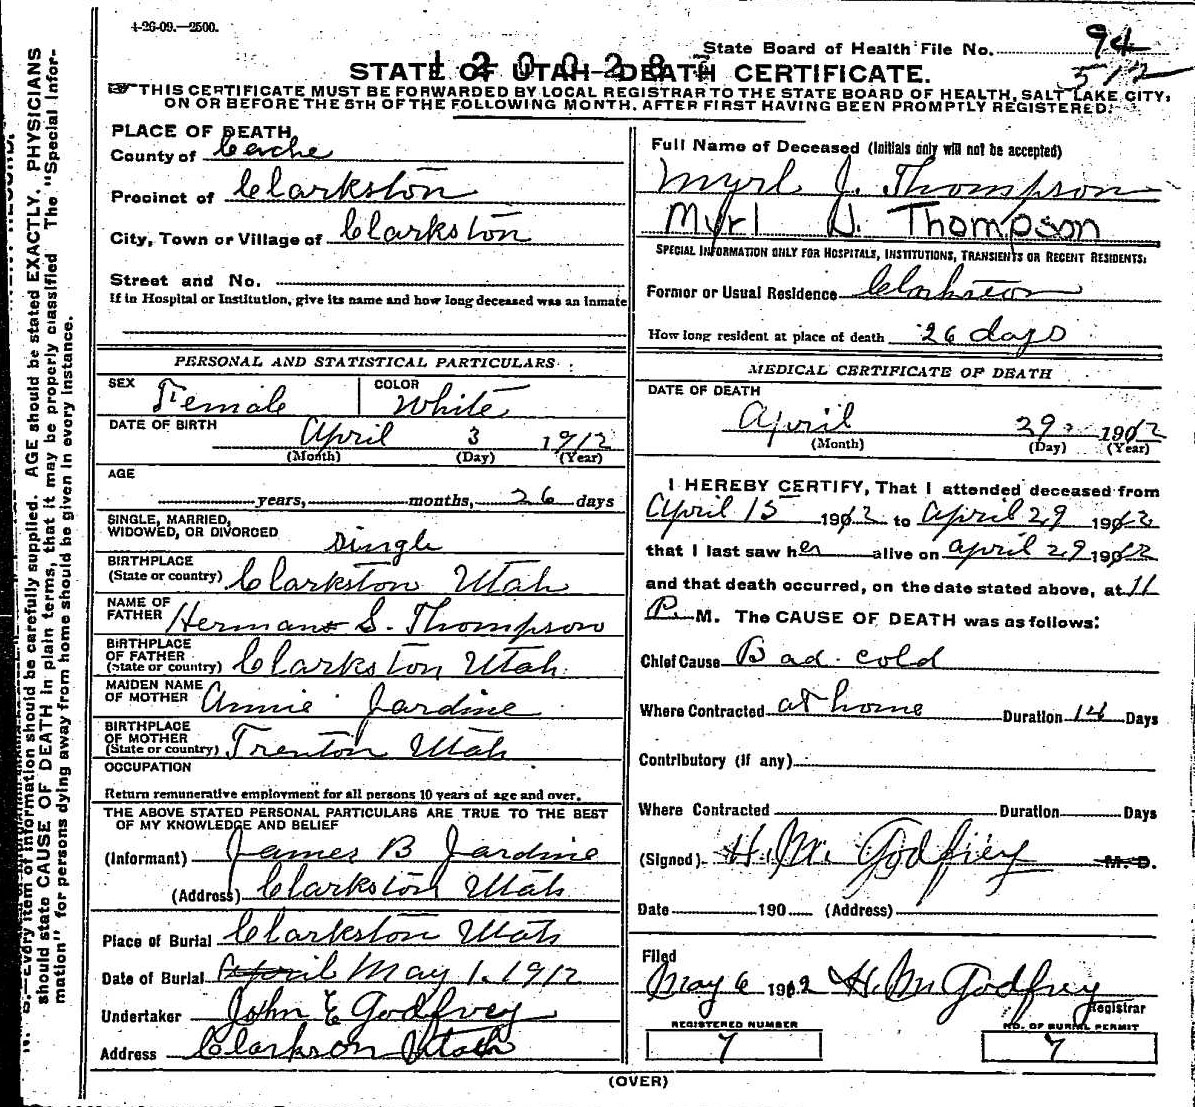 4-26-09.—2500.
State Board of Health File No. 94
STATE OF UTAH—DEATH CERTIFICATE.
5/12
THIS CERTIFICATE MUST BE FORWARDED BY LOCAL REGISTRAR TO THE STATE BOARD OF HEALTH, SALT LAKE CITY,
ON OR BEFORE THE 5TH OF THE FOLLOWING MONTH, AFTER FIRST HAVING BEEN PROMPTLY REGISTERED.
should state CAUSE OF DEATH in plain terms, that it may be properly classified. The "Special Infor-
mation" for persons dying away from home should be given in every instance.
N. B.—Every item of information should be carefully supplied. AGE should be stated EXACTLY. PHYSICIANS
PLACE OF DEATH
County of Cache
Precinct of Clarkston
City, Town or Village of Clarkston
Street and No.
If in Hospital or Institution, give its name and how long deceased was an inmate
PERSONAL AND STATISTICAL PARTICULARS
SEX Female COLOR White
DATE OF BIRTH April 3 1912
(Month) (Day) (Year)
AGE
years, months, 26 days
SINGLE, MARRIED,
WIDOWED, OR DIVORCED single
BIRTHPLACE
(State or country) Clarkston Utah
NAME OF
FATHER Herman S. Thompson
BIRTHPLACE
OF FATHER
(State or country) Clarkston Utah.
MAIDEN NAME
OF MOTHER Annie Jardine
BIRTHPLACE
OF MOTHER
(State or country) Trenton Utah
OCCUPATION
Return remunerative employment for all persons 10 years of age and over.
THE ABOVE STATED PERSONAL PARTICULARS ARE TRUE TO THE BEST
OF MY KNOWLEDGE AND BELIEF
(Informant) James B Jardine
(Address) Clarkston Utah
Place of Burial Clarkston Utah
Date of Burial April May 1. 1912
Undertaker John E Godfrey
Address Clarkson Utah
Full Name of Deceased (Initials only will not be accepted)
Myrl J. Thompson
Myrl J. Thompson
SPECIAL INFORMATION ONLY FOR HOSPITALS, INSTITUTIONS, TRANSIENTS OR RECENT RESIDENTS:
Former or Usual Residence Clarkston
How long resident at place of death 26 days
MEDICAL CERTIFICATE OF DEATH
DATE OF DEATH
April 29. 1912
(Month) (Day) (Year)
I HEREBY CERTIFY, That I attended deceased from
April 15 1912 to April 29 1912
that I last saw her alive on april 29 1912
and that death occurred, on the date stated above, at 11
P. M. The CAUSE OF DEATH was as follows:
Chief Cause Bad cold
Where Contracted at home Duration 14 Days
Contributory (if any)
Where Contracted Duration Days
(Signed) H. M. Godfrey M. D.
Date 190 (Address)
Filed
May 6 1912 H. M Godfrey
Registrar
REGISTERED NUMBER
7
NO. OF BURIAL PERMIT
7
(OVER)